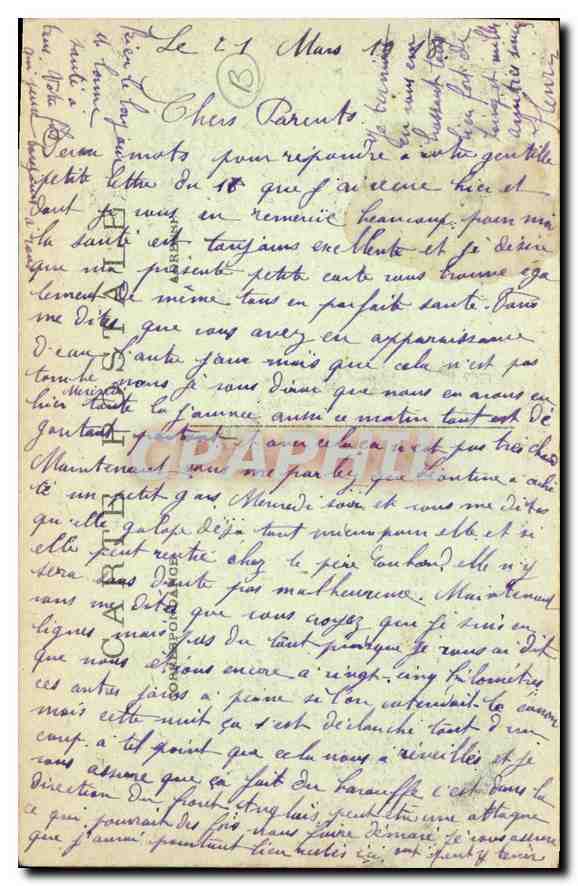 Le 21 Mars 1918
B
Chers Parents
Deux mots pour répondre a votre gentille
petite lettre du 18 que j'ai recue hier et
dont je vous en remercie beaucoup. pour moi
la santé est toujours excellente et je désire
que ma présente petite carte vous trouve éga
lement de même tous en parfaite santé. Vous
me dites que vous avez eu apparaissance
d'eau l'autre jour mais que cela n'est pas
tombé nous je vous dirai que nous en avons eu
hier Mercredi toute la journée aussi ce matin tout est dé
goutant partout et avec cela ca n'est pas tres chaud
Maintenant vous me parlez que Léontine a
té un petit gars Mercredi soir et vous me dites
qu'elle galope déja tant mieux pour elle et si
elle peut rentré chez le père elle n'y
sera sans doute pas malheureuse. Maintenant
vous me dites que vous croyez que je suis en
lignes mais pas du tout puisque je vous ai dit
que nous étions encore a vingt-cinq kilomètres
ces autres jours a peine si l'on entendait le canon
mais cette nuit ça s'est déclanché tout d'un
coup a tel point que cela nous a réveillés et je
vous assure que ça fait du barouffe c'est dans la
direction du front Anglais peut etre une attaque
ce qui pourrait des fois nous faire démaré je vous assure
que j'aurai pourtant bien restés ici ont peut y tenir
Je termine
en vous em
brassant tous
bien fort de
loin et mille
amitiés
Henri
bonne
santé a
tous. Votre fils
qui pense toujours a vous
CARTE POSTALE
CORRESPONDANCE
ADRESSE
CPAPHIL